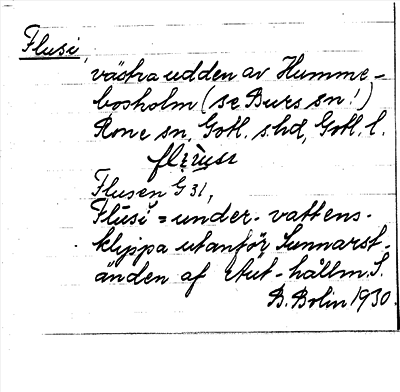 Flusi,
västra udden av Humme-
bosholm (se Burs sn!)
Rone sn, Gotl. s. hd, Gotl. l.
Flusen G 31,
Flusi = under-vattens-
klyppa utanför Sunnarst-
änden af Aut-hållm. S.
B. Bolin 1930.